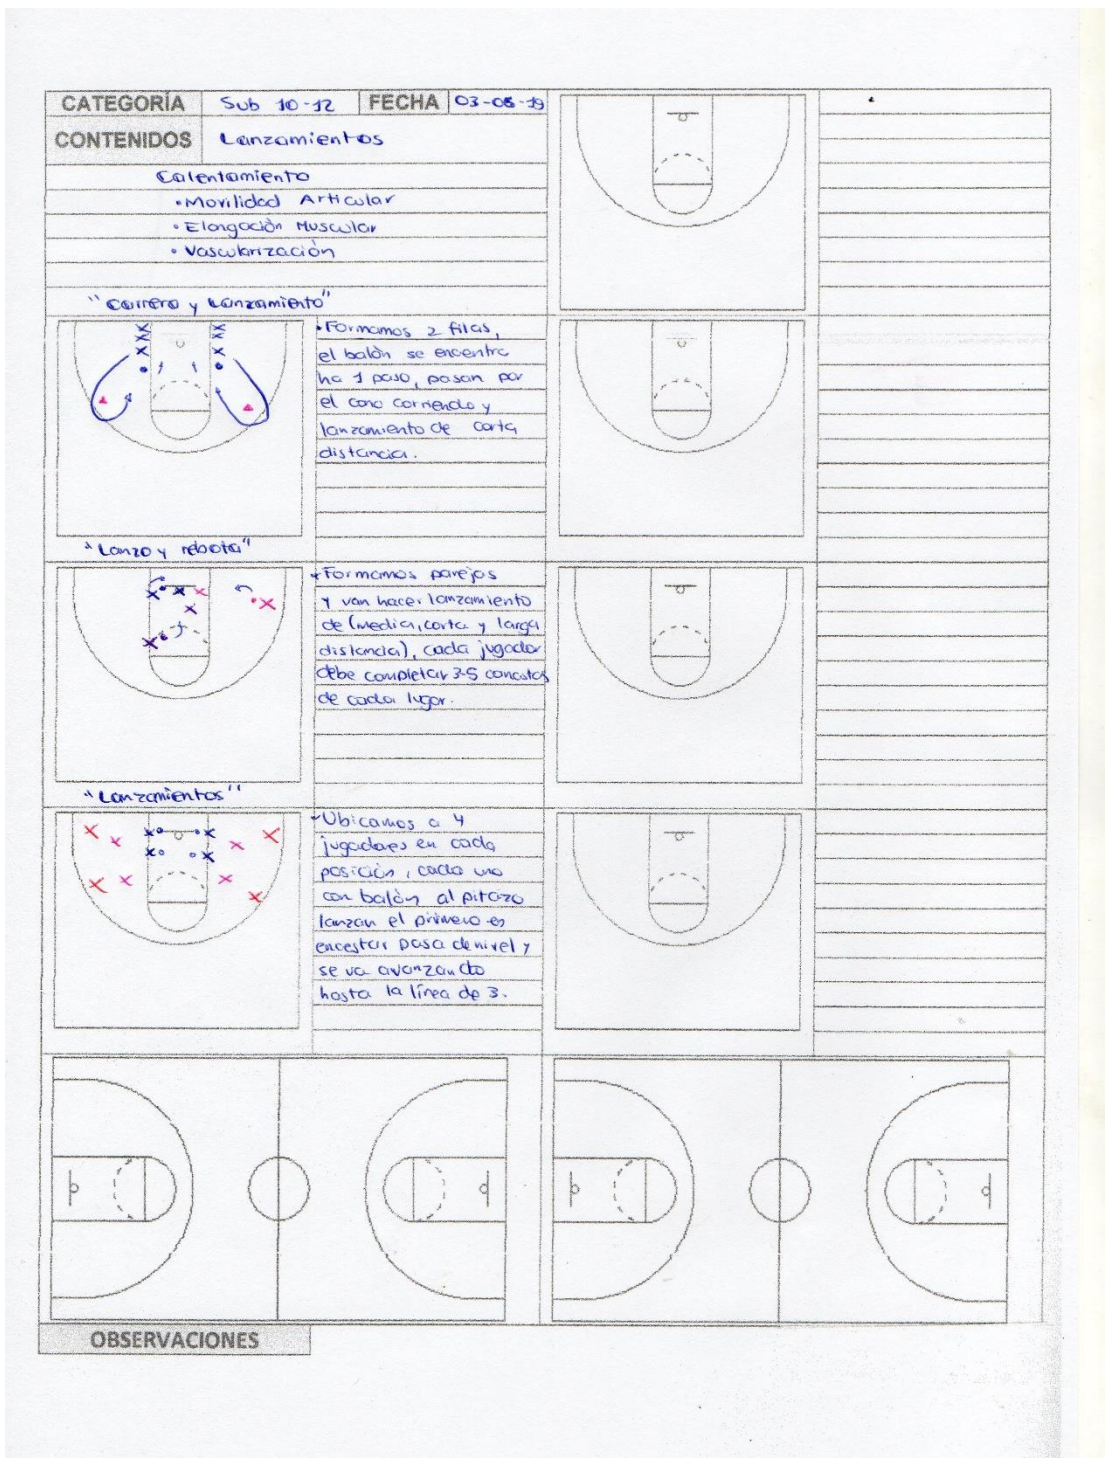 CATEGORÍA Sub 10-12 FECHA 03-06-19
CONTENIDOS Lanzamientos
Calentamiento
• Movilidad Articular
• Elongación Muscular
• Vascularización
"Carrera y Lanzamiento"
• Formamos 2 filas,
el balón se encentra
ha 1 paso, pasan por
el cono corriendo y
lanzamiento de corta
distancia.
"Lanzo y rebota"
Formamos parejas
y van hacer lanzamiento
de (media, corta y larga
distancia), cada jugador
debe completar 3-5
de cada lugar.
"Lanzamientos"
Ubicamos a 4
jugadores en cada
posición, cada uno
con balón al pitazo
lanzan el primero en
encestar pasa de nivel y
se va avanzando
hasta la línea de 3.
OBSERVACIONES